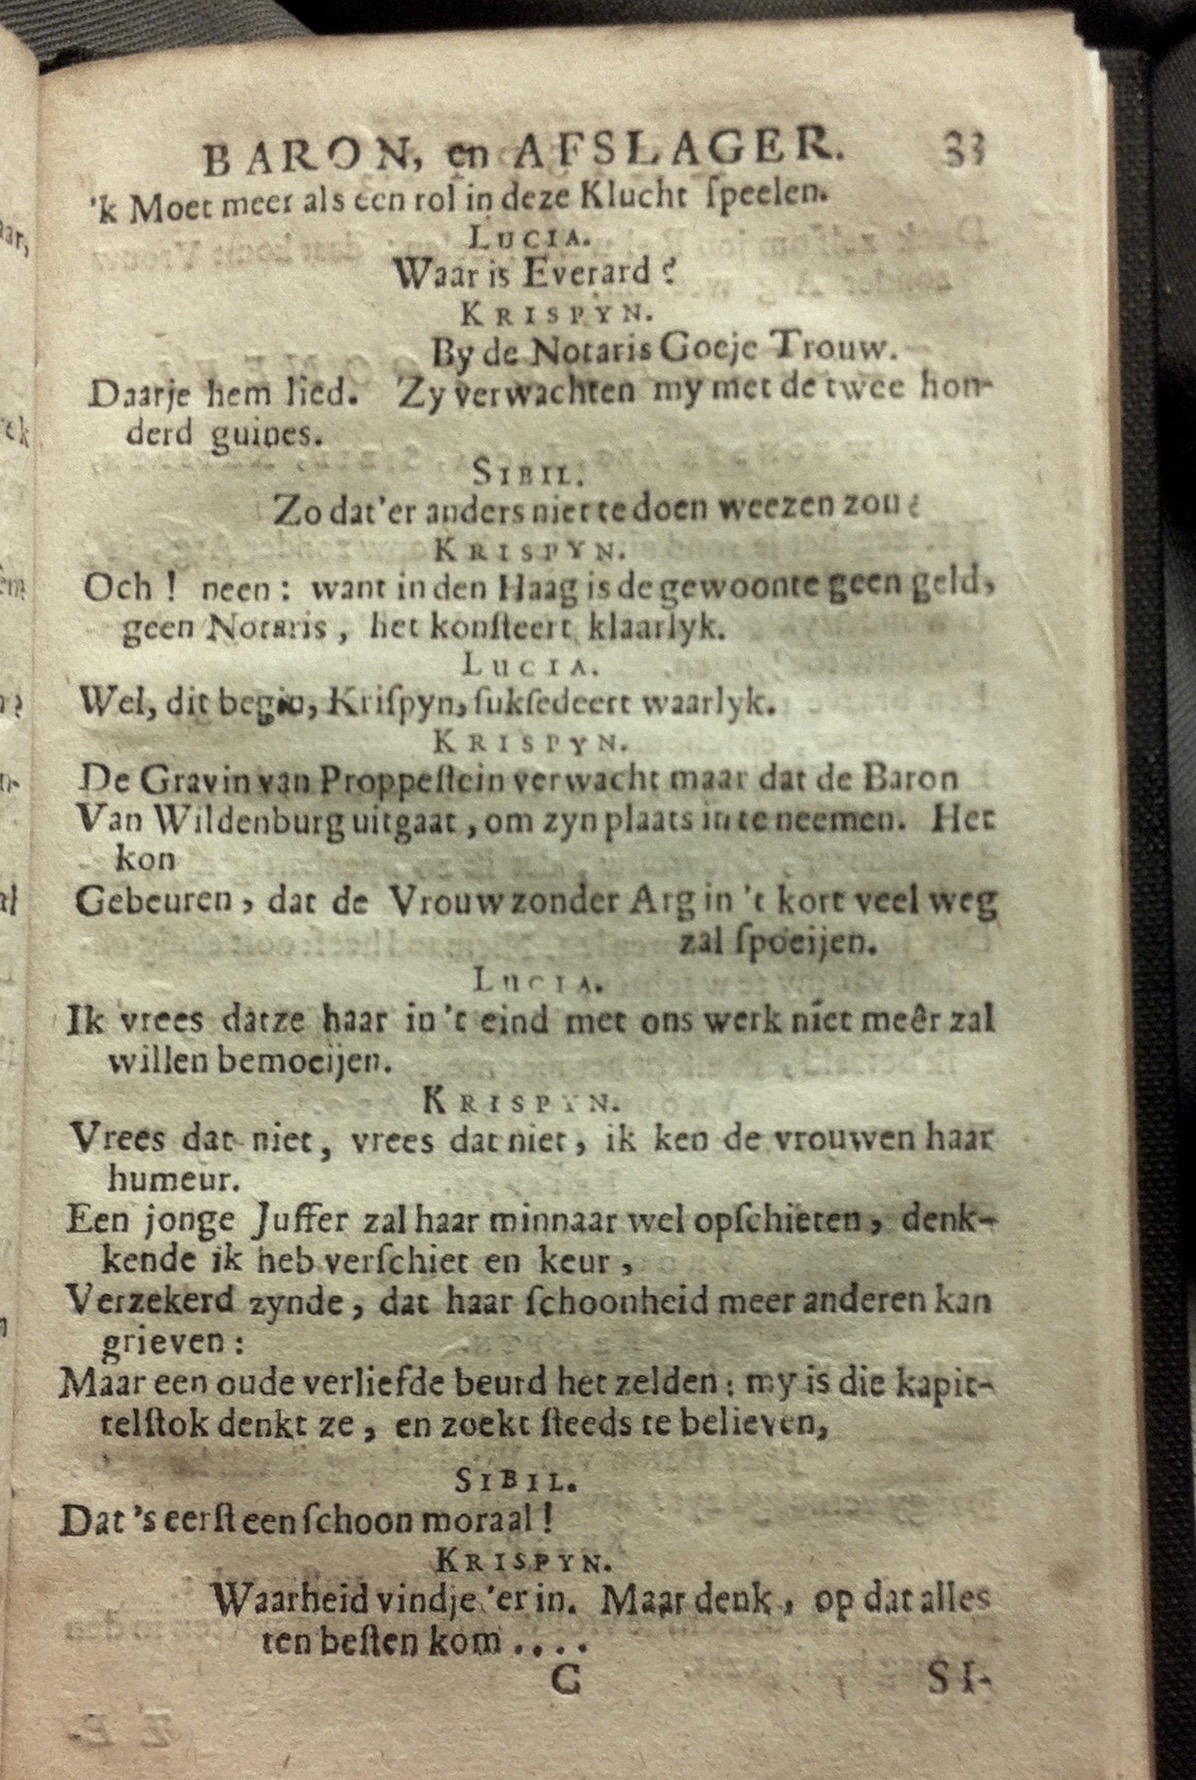 BARON, en AFSLAGER. 33
'k Moet meer als een rol in deze Klucht ſpeelen.
LUCIA.
Waar is Everard?
KRISPYN.
By de Notaris Goeje Trouw.
Daarje hem lied. Zy verwachten my met de twee hon-
derd guines.
SIBIL.
Zo dat'er anders niet te doen weezen zou?
KRISPYN.
Och! neen: want in den Haag is de gewoonte geen geld,
geen Notaris, het konſteert klaarlyk.
LUCIA.
Wel, dit begin, Kriſpyn, ſukſedeert waarlyk.
KRISPYN.
De Gravin van Proppeſtein verwacht maar dat de Baron
Van Wildenburg uitgaat, om zyn plaats in te neemen. Het
kon
Gebeuren, dat de Vrouw zonder Arg in 't kort veel weg
zal ſpoeijen.
LUCIA.
Ik vrees datze haar in 't eind met ons werk niet meêr zal
willen bemoeijen.
KRISPYN.
Vrees dat niet, vrees dat niet, ik ken de vrouwen haar
humeur.
Een jonge Juffer zal haar minnaar wel opſchieten, denk-
kende ik heb verſchiet en keur,
Verzekerd zynde, dat haar ſchoonheid meer anderen kan
grieven:
Maar een oude verliefde beurd het zelden: my is die kapit-
telſtok denkt ze, en zoekt ſteeds te believen,
SIBIL.
Dat 's eerſt een ſchoon moraal!
KRISPYN.
Waarheid vindje 'er in. Maar denk, op dat alles
ten beſten kom ....
C SI-